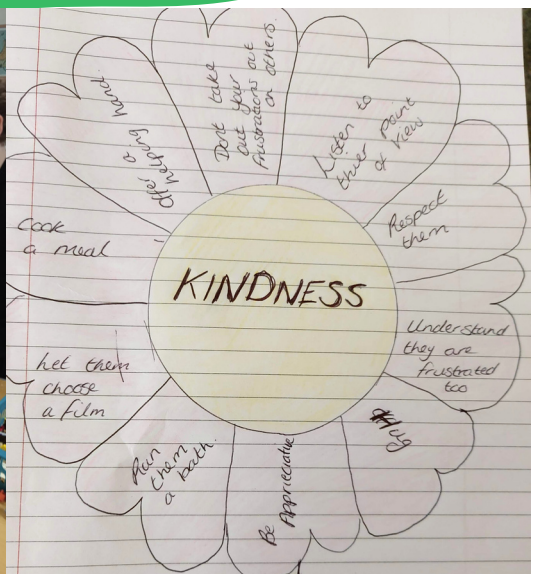 KINDNESS
Dont take
out your
frustrations out
on others.
Listen to
thier point
of view
Respect
them
Understand
they are
frustrated
too
Hug
Be Appreciative!
Run
them
a bath.
Let them
choose
a film
Cook
a meal
Offer a
helping hand.